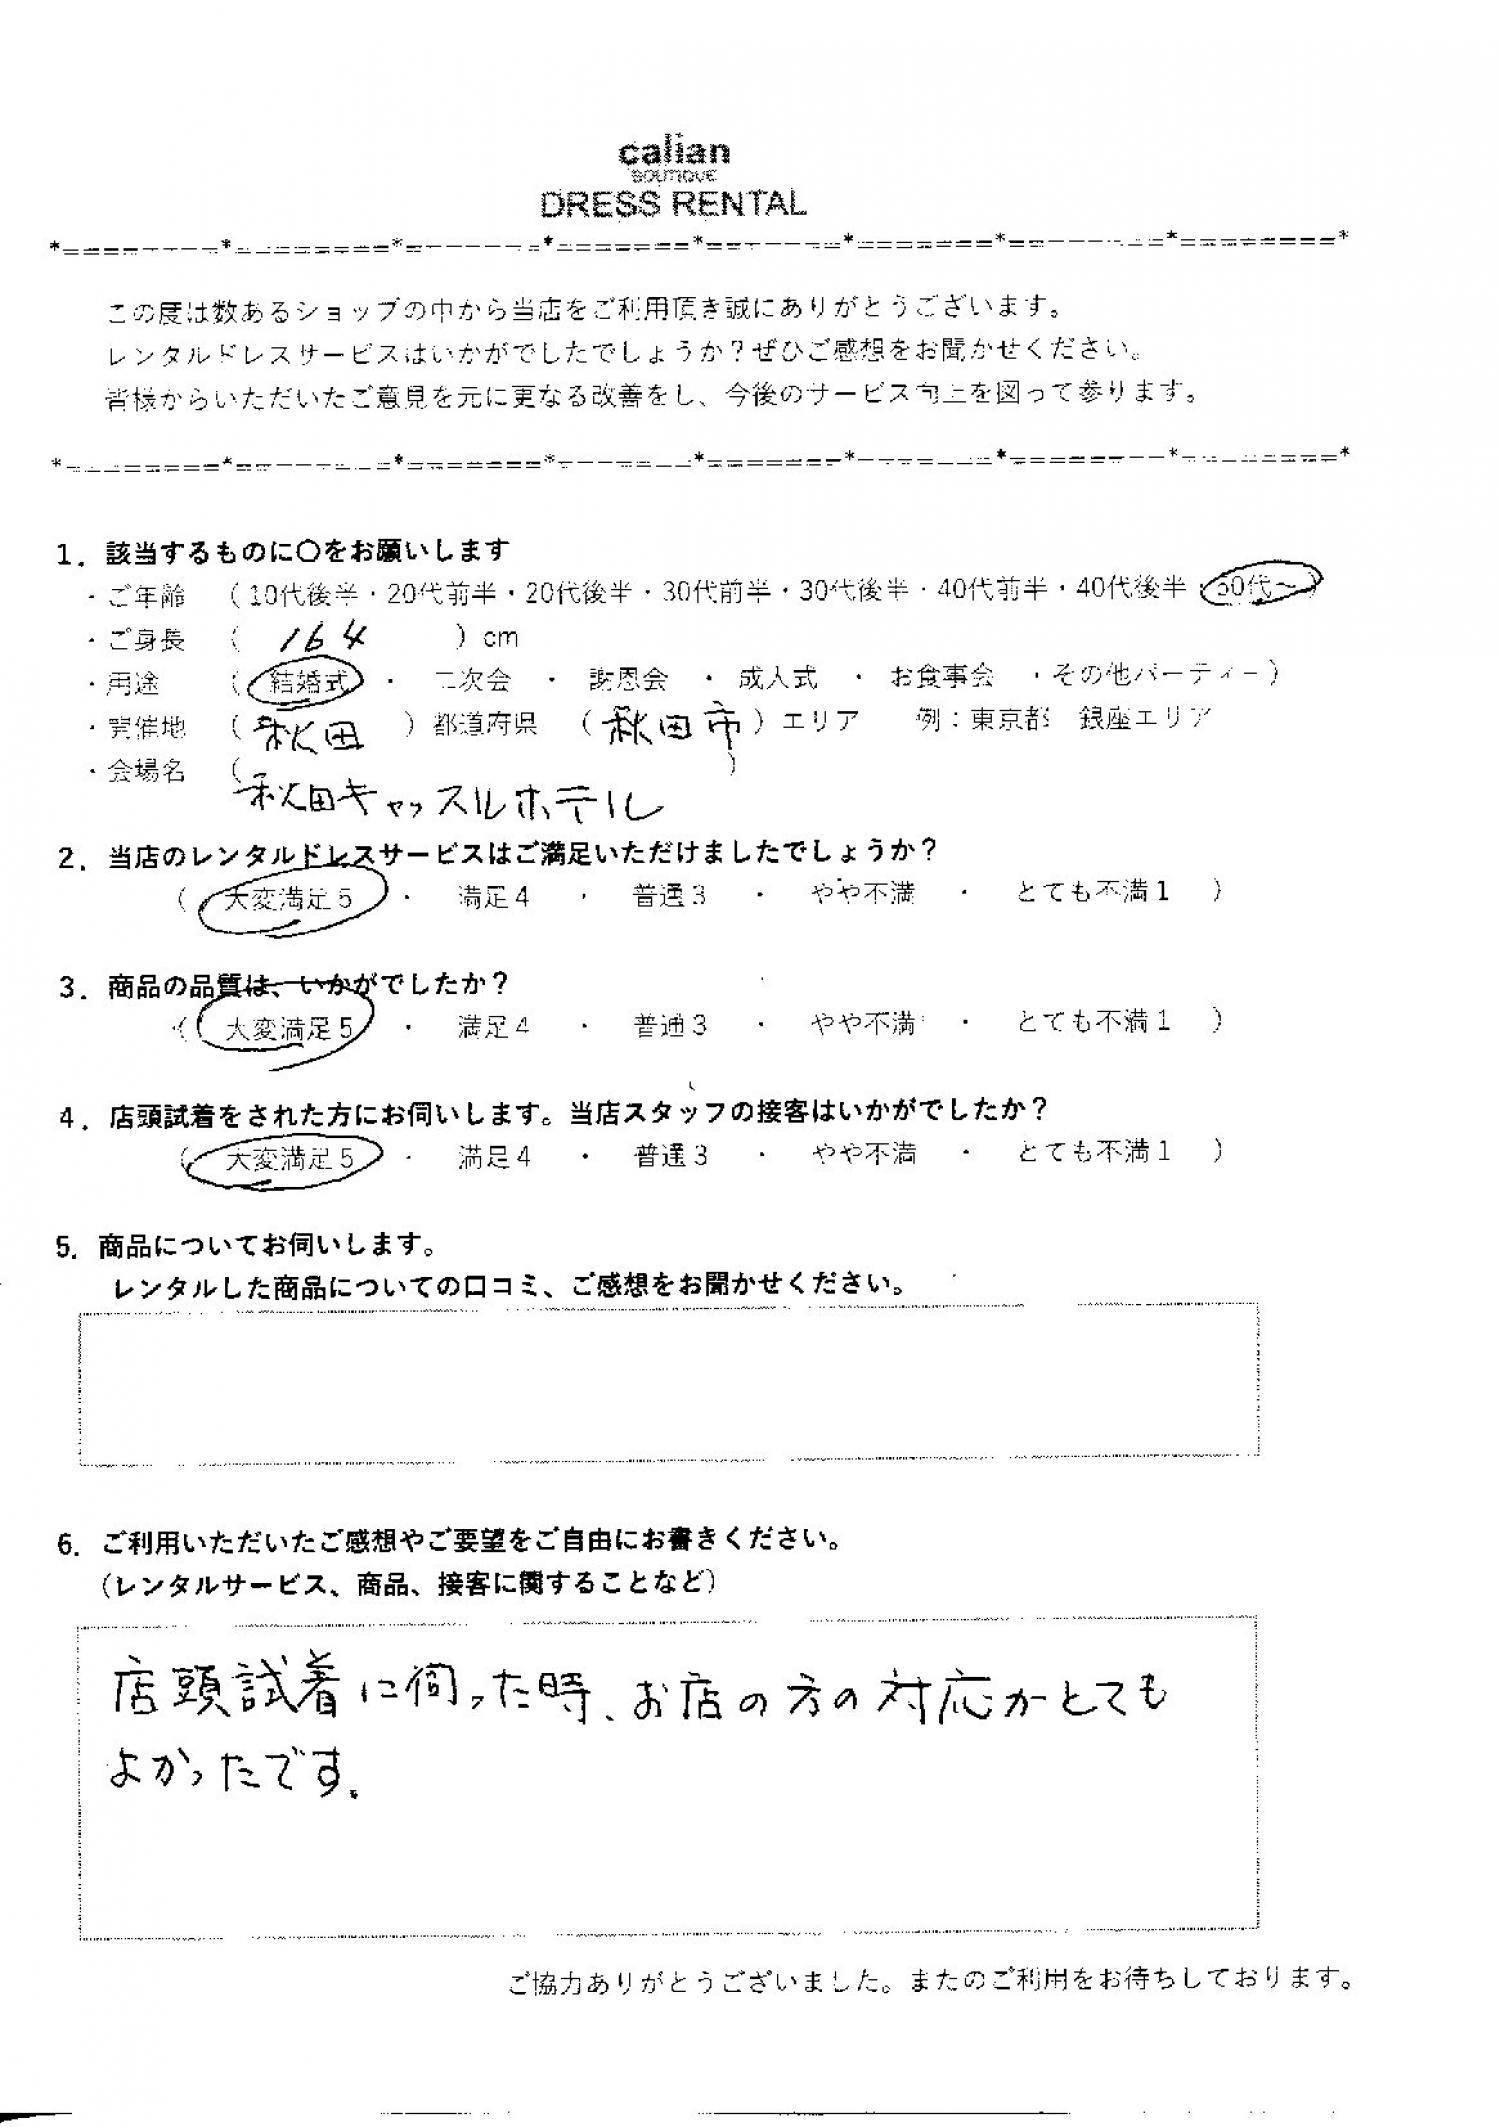 calian
BOUTIQUE
DRESS RENTAL
この度は数あるショップの中から当店をご利用頂き誠にありがとうございます。
レンタルドレスサービスはいかがでしたでしょうか？ぜひご感想をお聞かせください。
皆様からいただいたご意見を元に更なる改善をし、今後のサービス向上を図って参ります。
1．該当するものに〇をお願いします
・ご年齢 （10代後半・20代前半・20代後半・30代前半・30代後半・40代前半・40代後半・50代～）
・ご身長 （ 164 ）cm
・用途 （ 結婚式 ・ 二次会 ・ 謝恩会 ・ 成人式 ・ お食事会 ・その他パーティー）
・開催地 （ 秋田 ）都道府県 （ 秋田市 ）エリア 例：東京都 銀座エリア
・会場名 （ 秋田キャッスルホテル ）
2．当店のレンタルドレスサービスはご満足いただけましたでしょうか？
（ 大変満足5 ・ 満足4 ・ 普通3 ・ やや不満 ・ とても不満1 ）
3．商品の品質は、いかがでしたか？
（ 大変満足5 ・ 満足4 ・ 普通3 ・ やや不満 ・ とても不満1 ）
4．店頭試着をされた方にお伺いします。当店スタッフの接客はいかがでしたか？
（ 大変満足5 ・ 満足4 ・ 普通3 ・ やや不満 ・ とても不満1 ）
5．商品についてお伺いします。
レンタルした商品についての口コミ、ご感想をお聞かせください。
6．ご利用いただいたご感想やご要望をご自由にお書きください。
（レンタルサービス、商品、接客に関することなど）
店頭試着に伺った時、お店の方の対応がとても
よかったです。
ご協力ありがとうございました。またのご利用をお待ちしております。